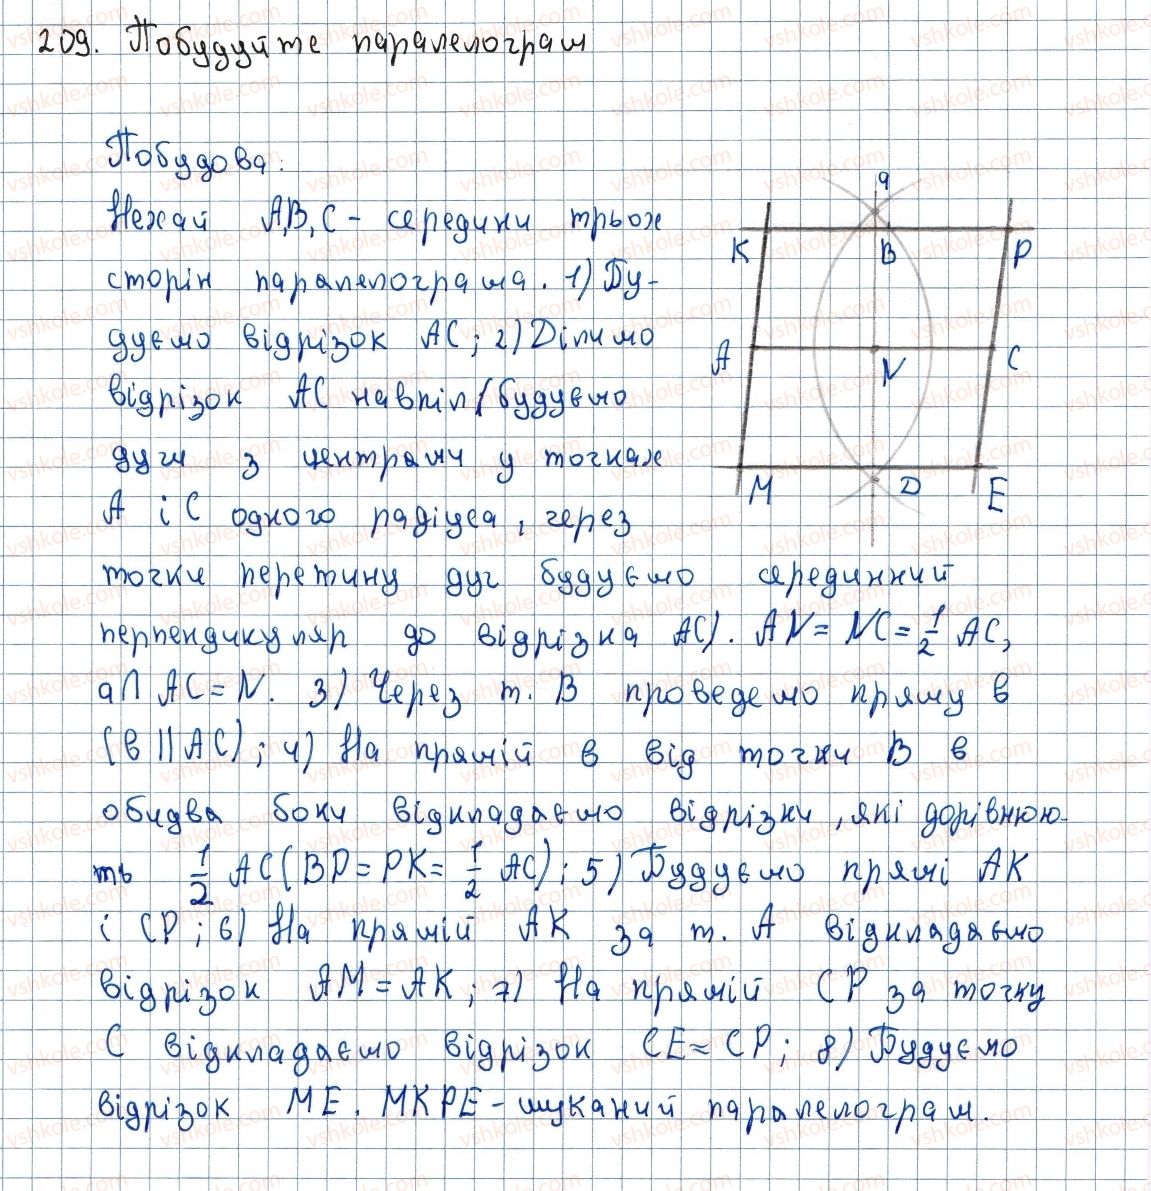 209. Побудуйте паралелограм
Побудова:
Нехай A,B,C - середини трьох
сторін паралелограма. 1) Бу-
дуємо відрізок AC; 2) Ділимо
відрізок AC навпіл (будуємо
дуги з центрами у точках
A і C одного радіуса, через
точки перетину дуг будуємо серединний
перпендикуляр до відрізка AC). AN = NC = 1/2 AC,
a ∩ AC = N. 3) Через т. B проведемо пряму в
(в || AC); 4) На прямій в від точки B в
обидва боки відкладаємо відрізки, які дорівнюю-
ть 1/2 AC (BP = PK = 1/2 AC); 5) Будуємо прямі AK
і CP; 6) На прямій AK за т. A відкладаємо
відрізок AM = AK; 7) На прямій CP за точку
C відкладаємо відрізок CE = CP; 8) Будуємо
відрізок ME. MKPE - шуканий паралелограм.
a
K B P
A N C
M D E
vshkole.com